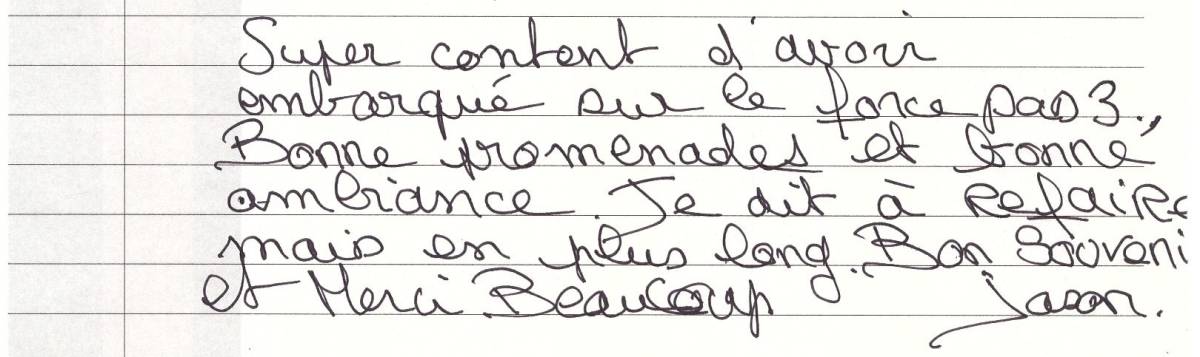 Super content d'avoir
embarqué sur le force pas 3.,
Bonne promenades et bonne
ambiance. Je dit à Refaire
mais en plus long. Bon Souveni
et Merci Beaucoup Jason.